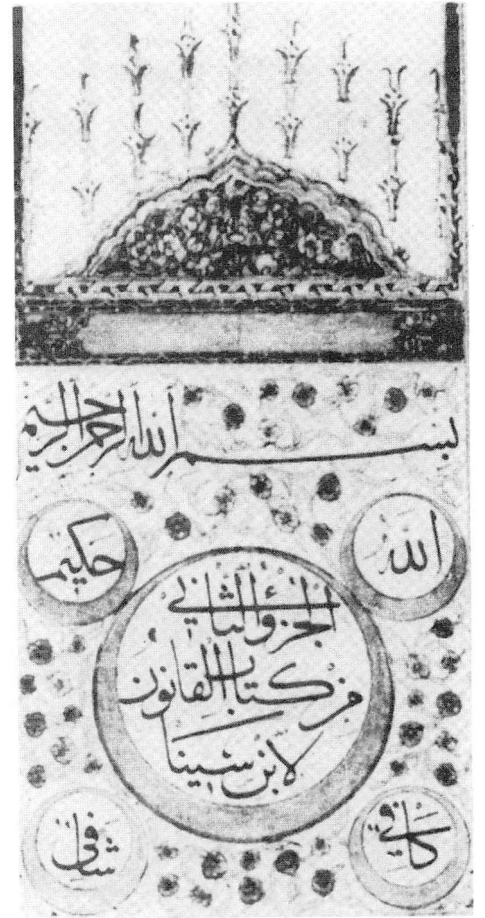 بسم الله الرحمن الرحيم
الله
حكيم
الجزؤ الثاني
من كتاب القانون
لابن سينا
كافي
شافي